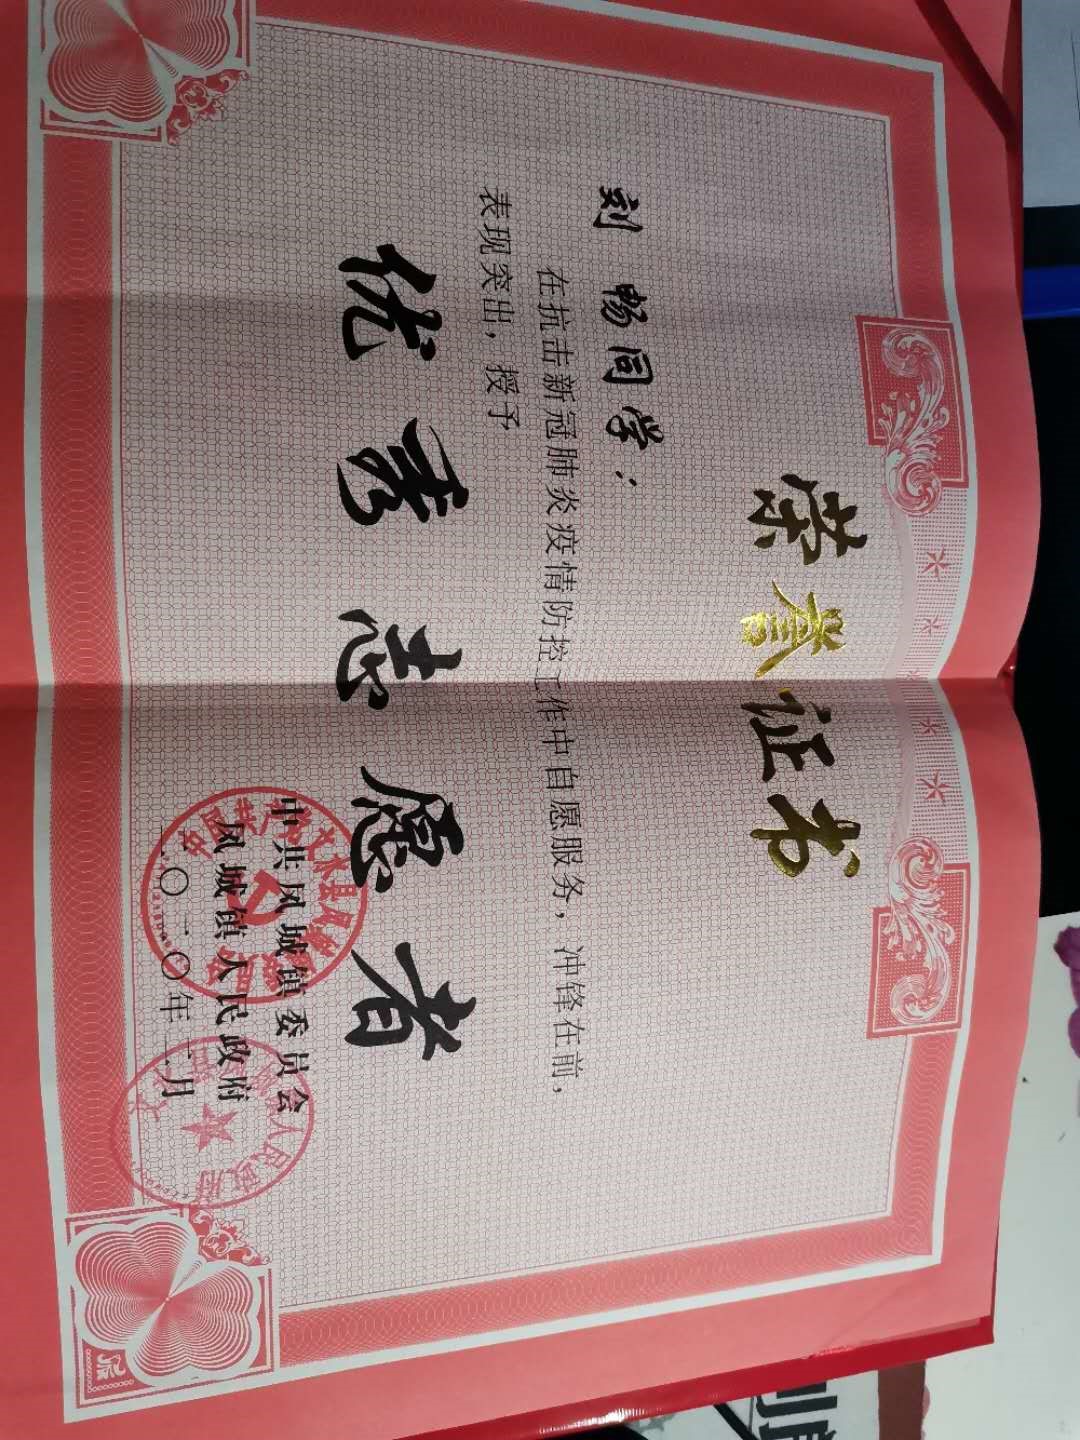 荣誉证书
刘畅同学：
在抗击新冠肺炎疫情防控工作中自愿服务，冲锋在前，
表现突出，授予
优秀志愿者
中共凤城镇委员会
凤城镇人民政府
二〇二〇年二月